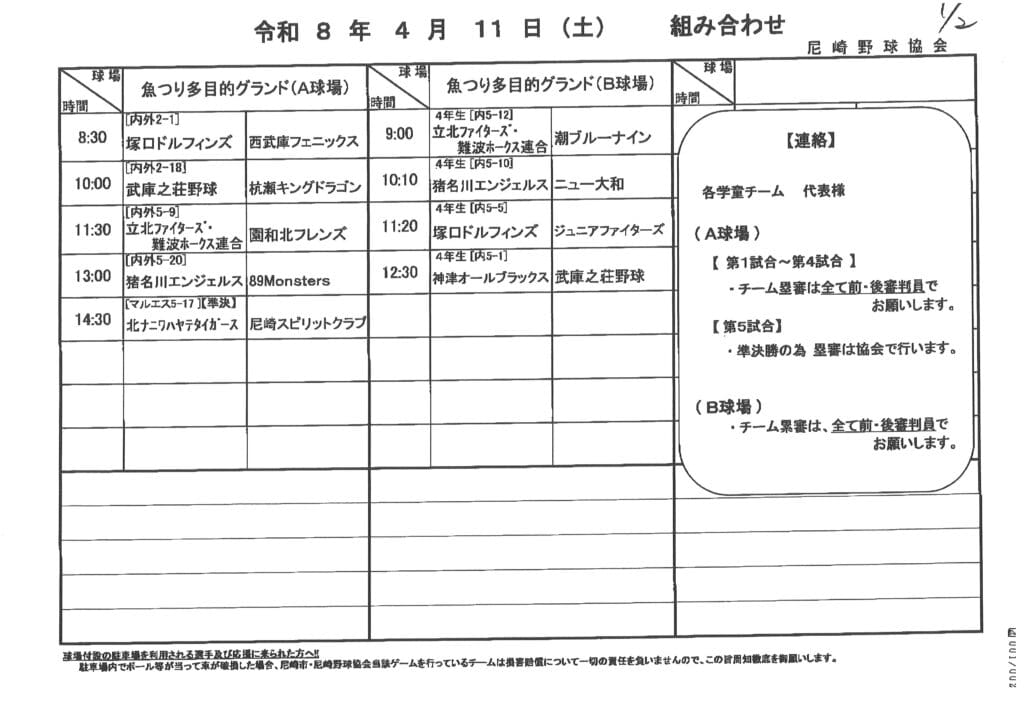 令和 8 年 4 月 11 日 (土) 組み合わせ
1/2
尼崎野球協会
球場
時間
魚つり多目的グランド(A球場)
球場
時間
魚つり多目的グランド(B球場)
球場
時間
8:30
[内外2-1]
塚口ドルフィンズ
西武庫フェニックス
9:00
4年生 [内5-12]
立北ファイターズ・
難波ホークス連合
潮ブルーナイン
10:00
[内外2-18]
武庫之荘野球
杭瀬キングドラゴン
10:10
4年生 [内5-10]
猪名川エンジェルス
ニュー大和
11:30
[内外5-9]
立北ファイターズ・
難波ホークス連合
園和北フレンズ
11:20
4年生 [内5-5]
塚口ドルフィンズ
ジュニアファイターズ
13:00
[内外5-20]
猪名川エンジェルス
89Monsters
12:30
4年生 [内5-1]
神津オールブラックス
武庫之荘野球
14:30
[マルニス5-17]【準決】
北ナニワハヤテタイガース
尼崎スピリットクラブ
【連絡】
各学童チーム 代表様
(A球場)
【 第1試合~第4試合 】
・チーム塁審は全て前・後審判員で
お願いします。
【第5試合】
・準決勝の為 塁審は協会で行います。
(B球場)
・チーム累審は、全て前・後審判員で
お願いします。
球場付設の駐車場を利用される選手及び応援に来られた方へ!!
駐車場内でボール等が当って車が破損した場合、尼崎市・尼崎野球協会当該ゲームを行っているチームは損害賠償について一切の責任を負いませんので、この旨周知徹底を御願いします。
001/002